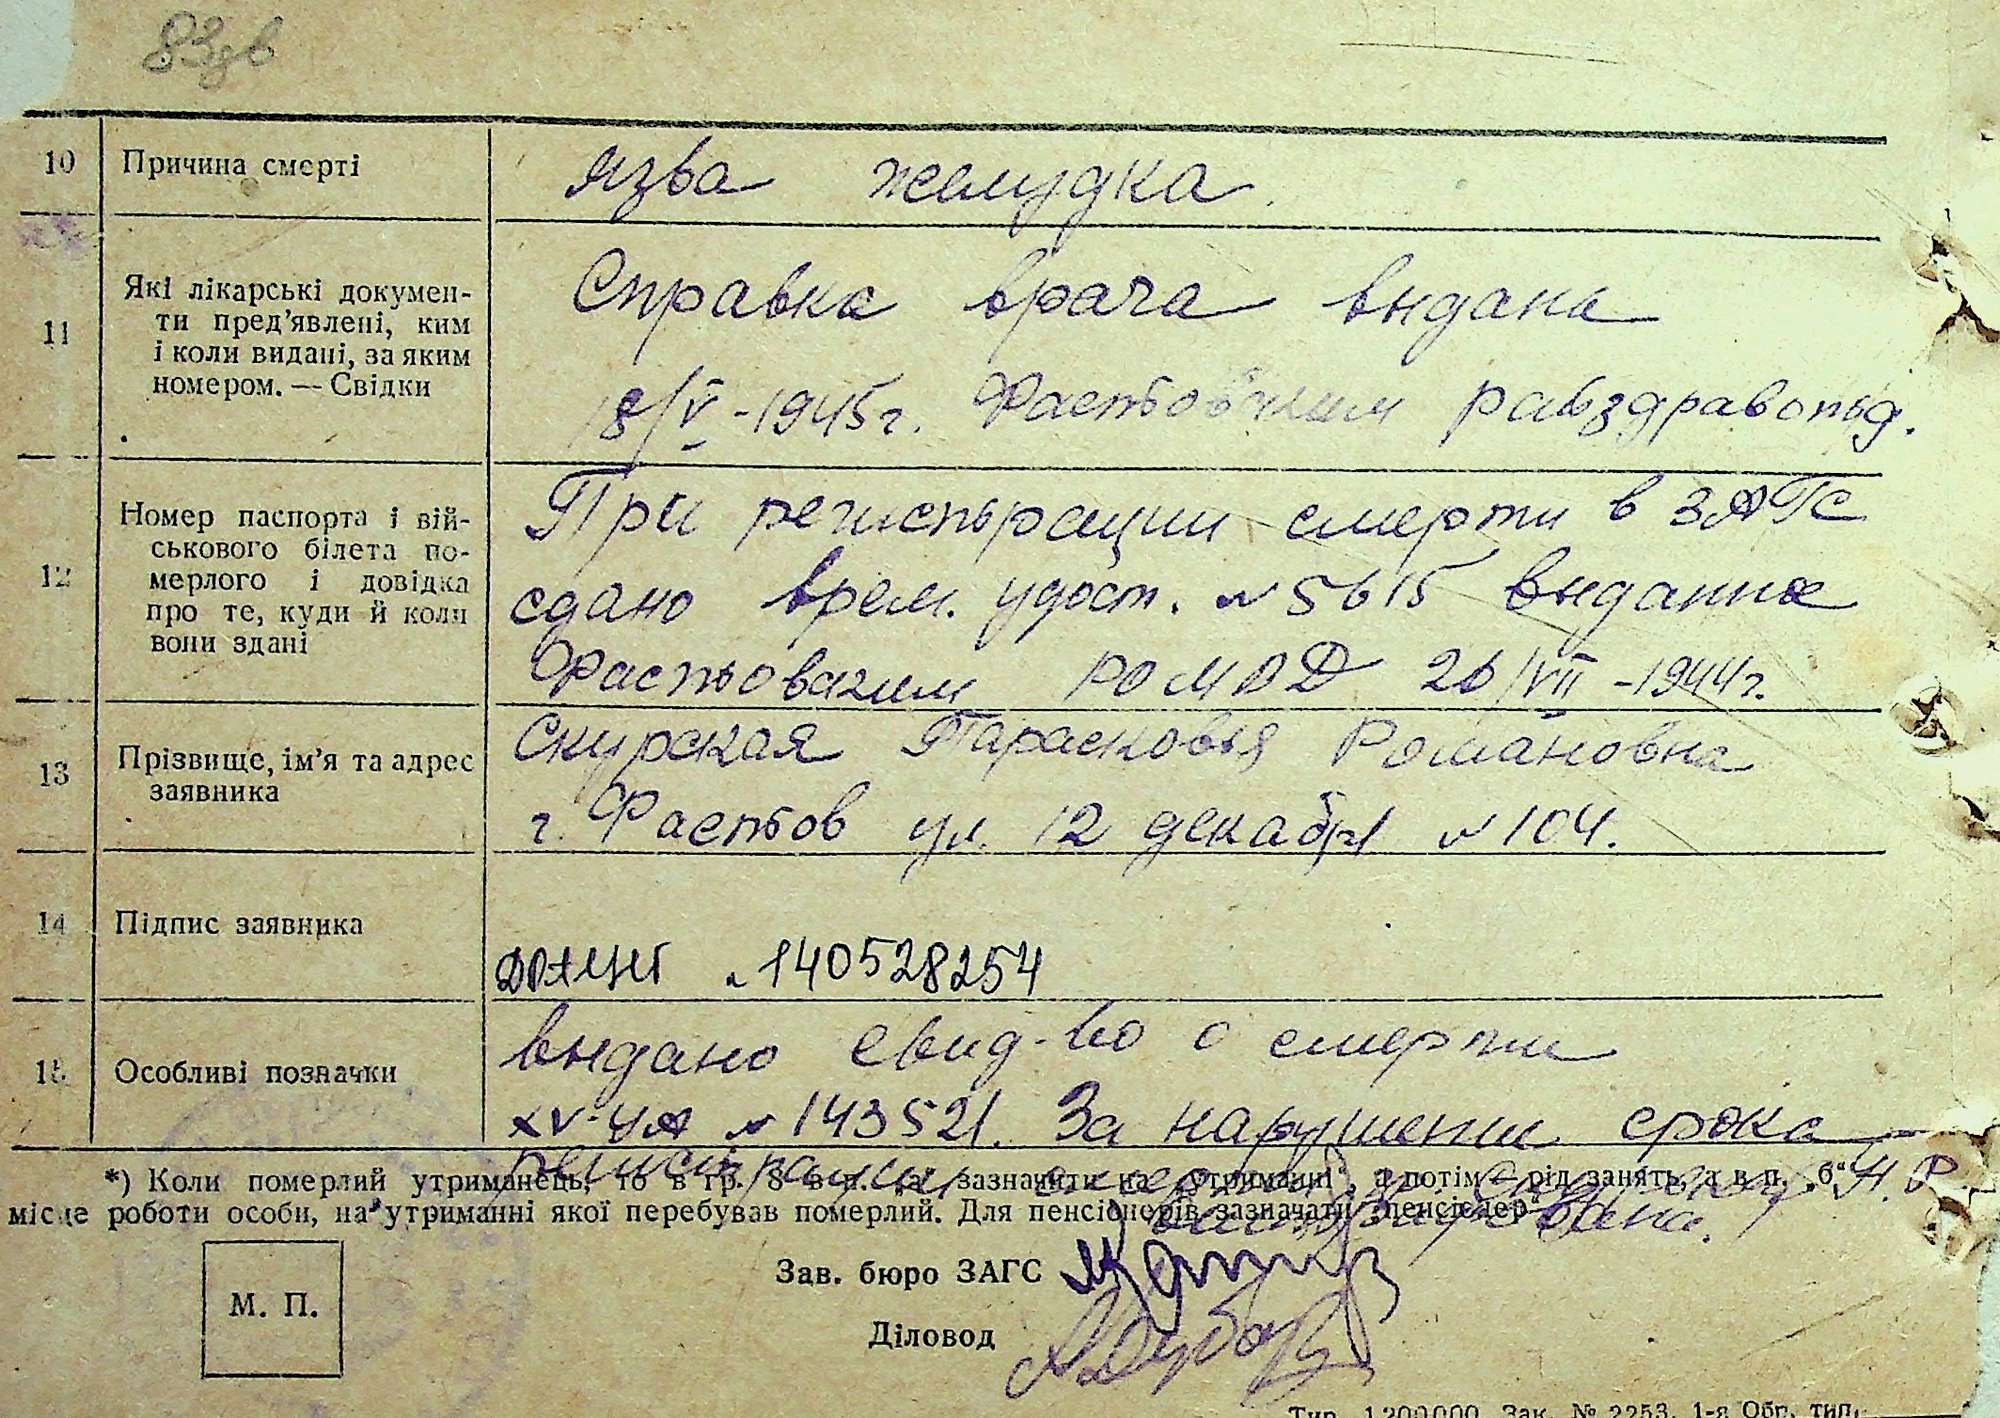 83зв
10 Причина смерті
язва желудка
11 Які лікарські докумен-
ти пред'явлені, ким
і коли видані, за яким
номером. — Свідки
Справка врача выдана
18/V - 1945 г. Фастовским райздравотд.
12 Номер паспорта і вій-
ськового білета по-
мерлого і довідка
про те, куди й коли
вони здані
При регистрации смерти в ЗАГС
сдано врем. удост. № 5615 выданное
Фастовским РОМВД 26/VII - 1944 г.
13 Прізвище, ім'я та адрес
заявника
Скурская Парасковья Романовна
г. Фастов ул. 12 декабря № 104.
14 Підпис заявника
№ 140528254
15 Особливі позначки
выдано свид-во о смерти
XV-УА № 143521. За нарушении срока
регистрации смерти Н. Р.
*) Коли померлий утриманець, то в гр. 8 в п. „а“ зазначити на „утриманні“, а потім — рід занять, а в п. „б“
місце роботи особи, на утриманні якої перебував померлий. Для пенсіонерів зазначати „пенсіонер“.
М. П.
Зав. бюро ЗАГС
Діловод
Тип. 1.200.000. Зак. № 2253. 1-я Обр. тип.